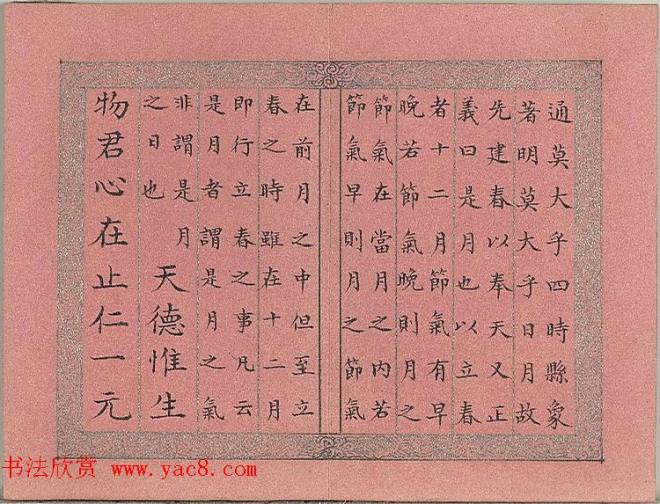 通莫大乎四時縣象
著明莫大乎日月故
先建春以奉天又正
義曰是月也以立春
者十二月節氣有早
晚若節氣晚則月之
節氣在當月之內若
節氣早則月之節氣
在前月之中但至立
春之時雖在十二月
即行立春之事凡云
是月者謂是月之氣
非謂是月
之日也
天德惟生
物君心在止仁一元
书法欣赏 www.yac8.com